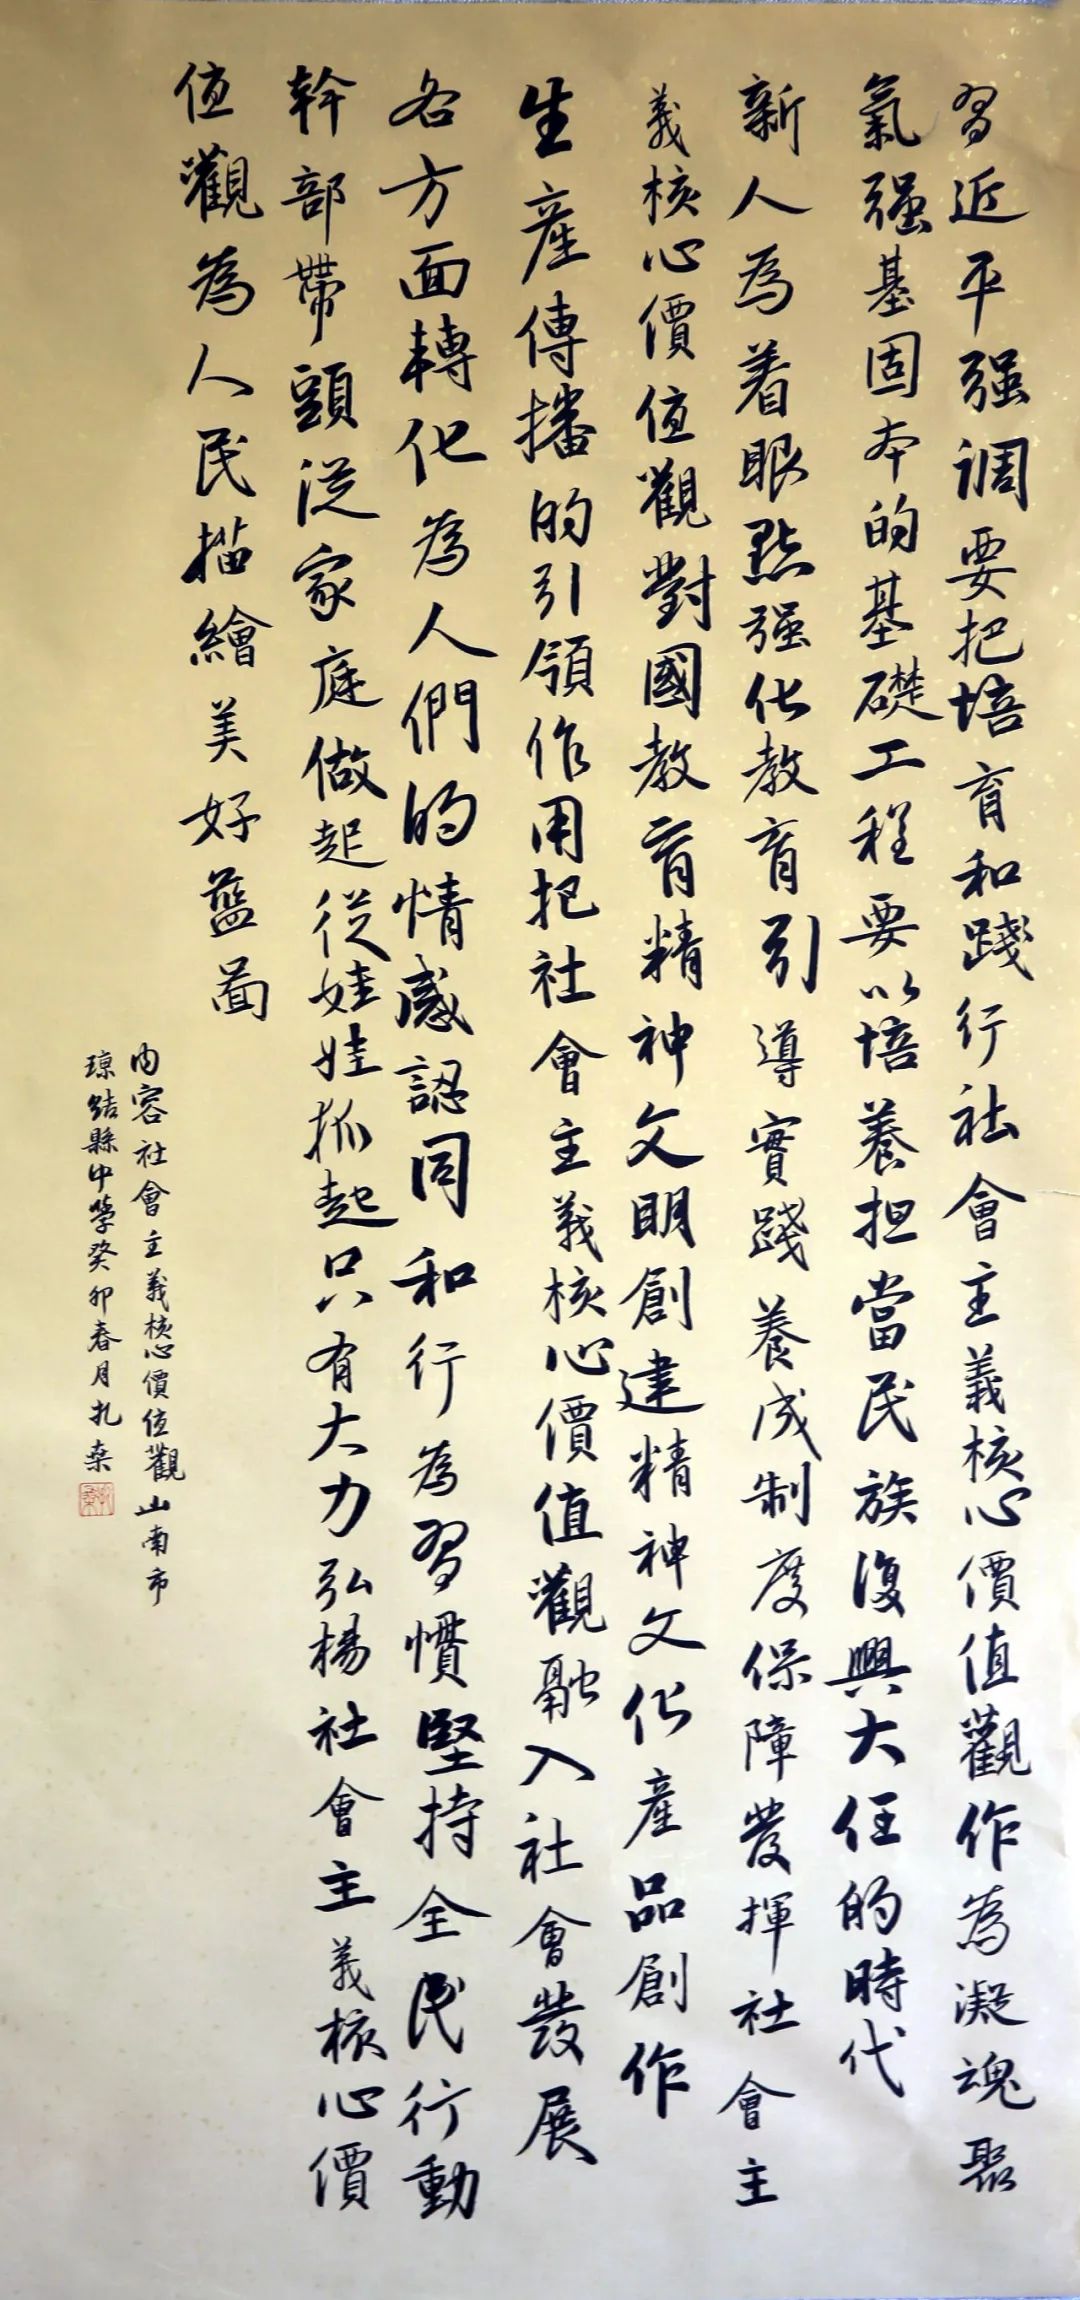 習近平强调要把培育和踐行社會主義核心價值觀作為凝魂聚
氣强基固本的基礎工程要以培養担當民族復興大任的時代
新人為着眼點强化教育引導實踐養成制度保障發揮社會主
義核心價值觀對國教育精神文明創建精神文化產品創作
生產傳播的引領作用把社會主義核心價值觀融入社會發展
各方面轉化為人們的情感認同和行為習慣堅持全民行動
幹部帶頭從家庭做起從娃娃抓起只有大力弘楊社會主義核心價
值觀為人民描繪美好藍圖
内容社會主義核心價值觀山南市
瓊结縣中學癸卯春月扎桑